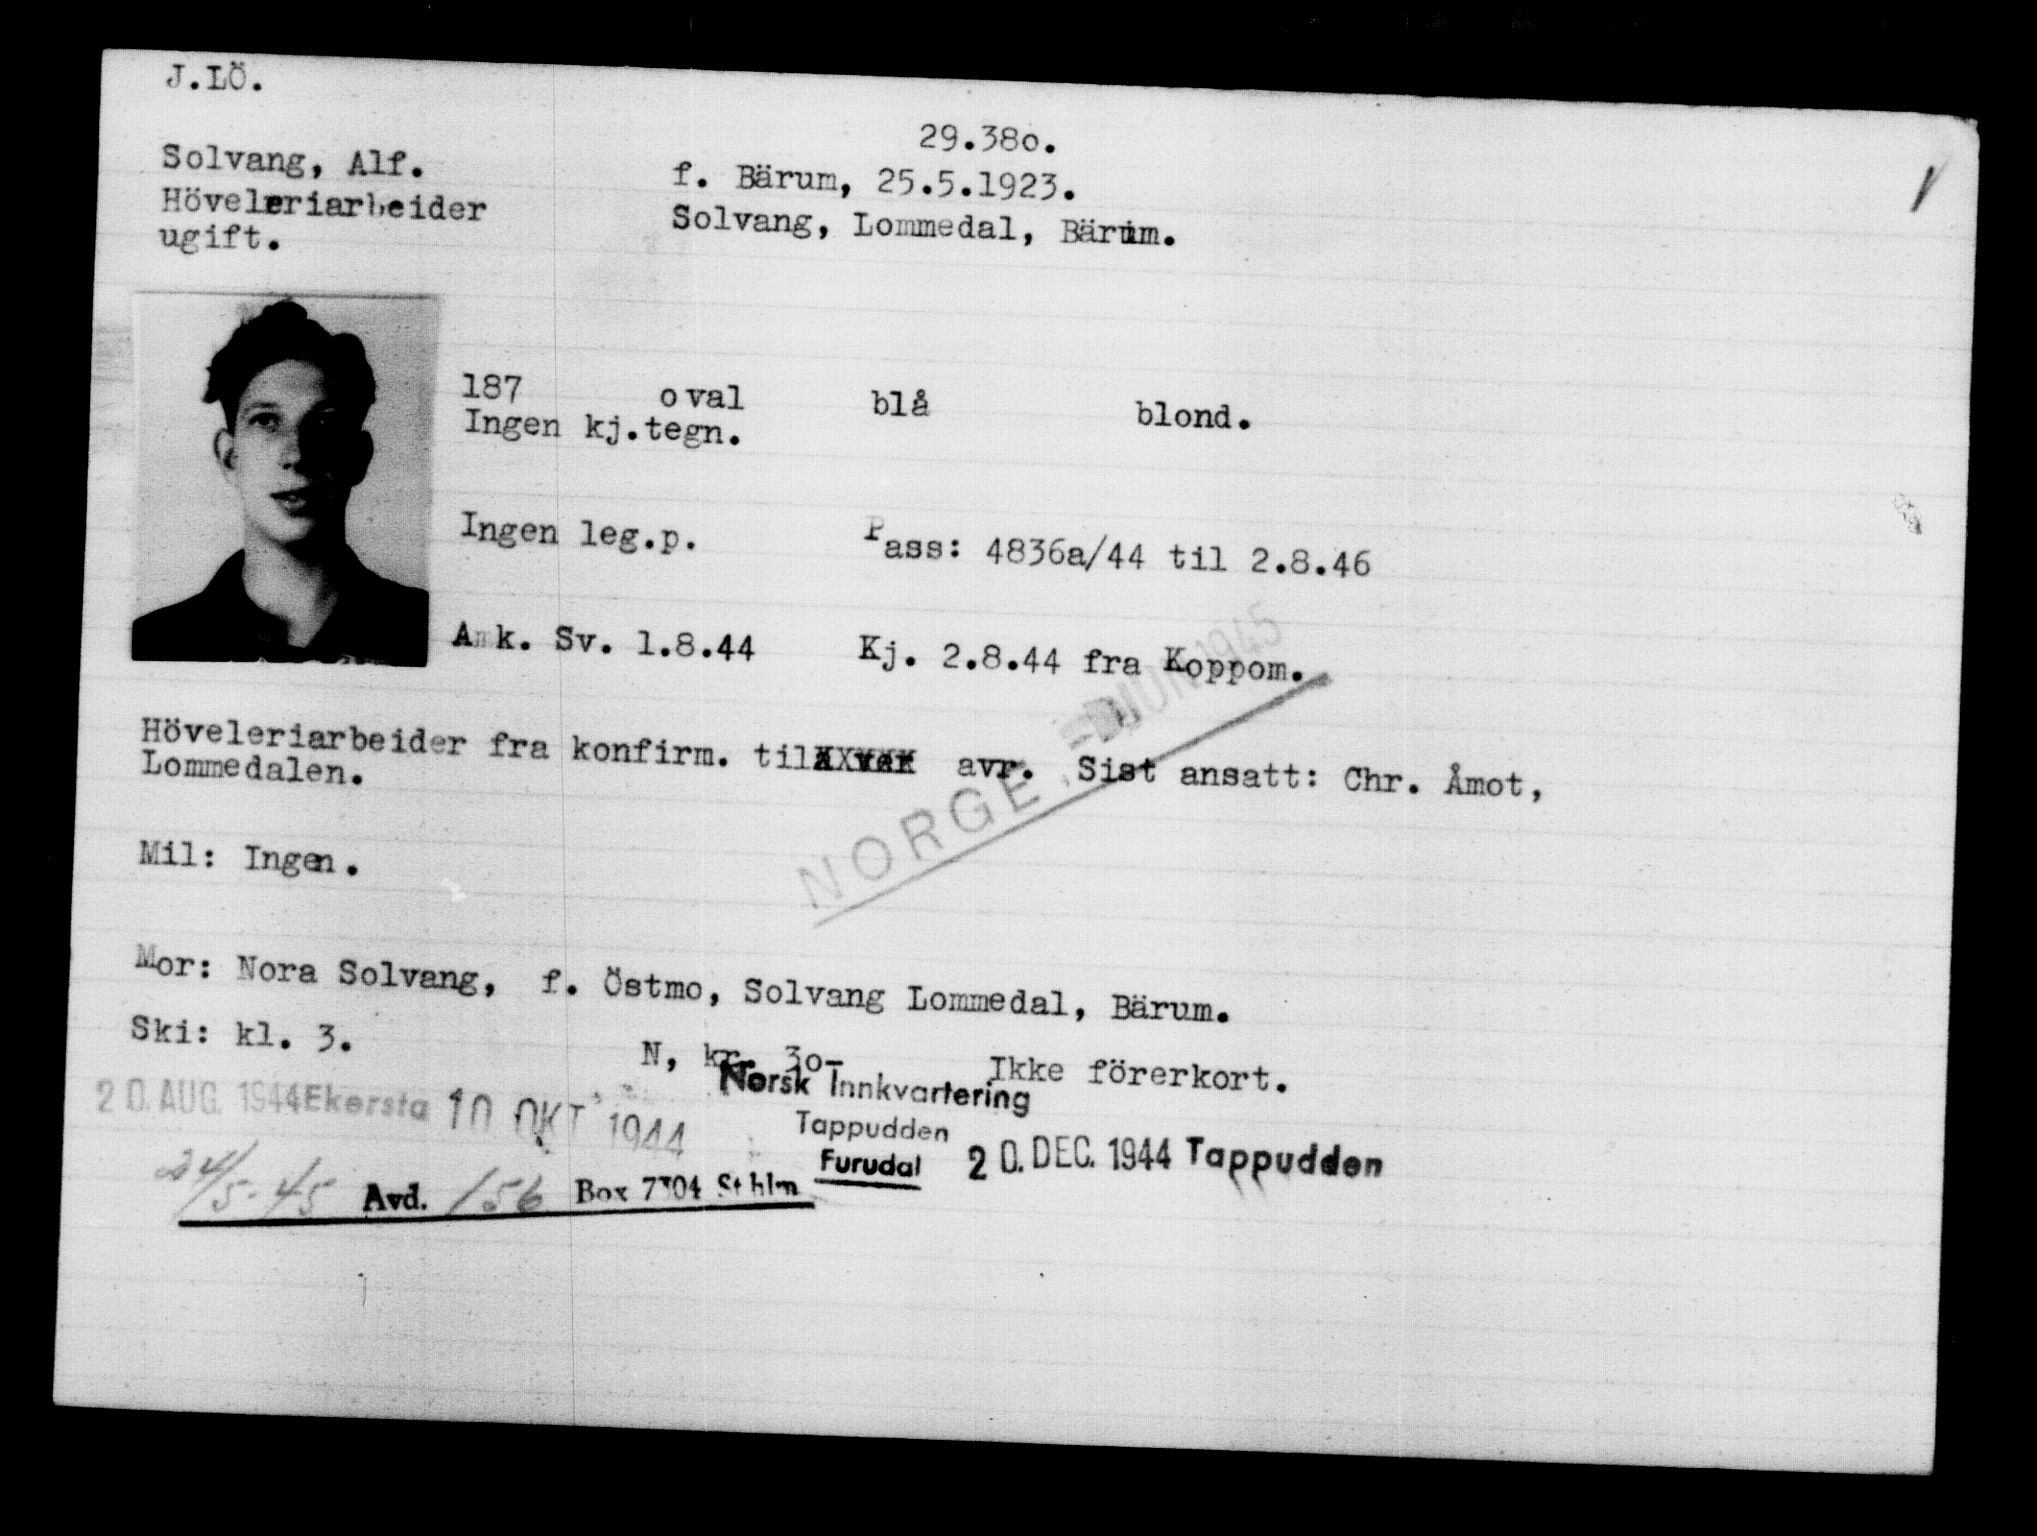 J.LÖ.
29.38o.
Solvang, Alf.
f. Bärum, 25.5.1923.
Höveleriarbeider
Solvang, Lommedal, Bärum.
ugift.
187 oval blå blond.
Ingen kj.tegn.
Ingen leg.p. Pass: 4836a/44 til 2.8.46
Ank. Sv. 1.8.44 Kj. 2.8.44 fra Koppom.
JUN 1945
Höveleriarbeider fra konfirm. til avr. Sist ansatt: Chr. Åmot,
Lommedalen.
NORGE
Mil: Ingen.
Mor: Nora Solvang, f. Östmo, Solvang Lommedal, Bärum.
Ski: kl. 3.
N, kr. 3o- Ikke förerkort.
Norsk Innkvartering
20. AUG. 1944 Ekersta 10 OKT 1944
Tappudden
Furudal
20. DEC. 1944 Tappudden
24/5-45 Avd. 156 Box 7304 Sthlm